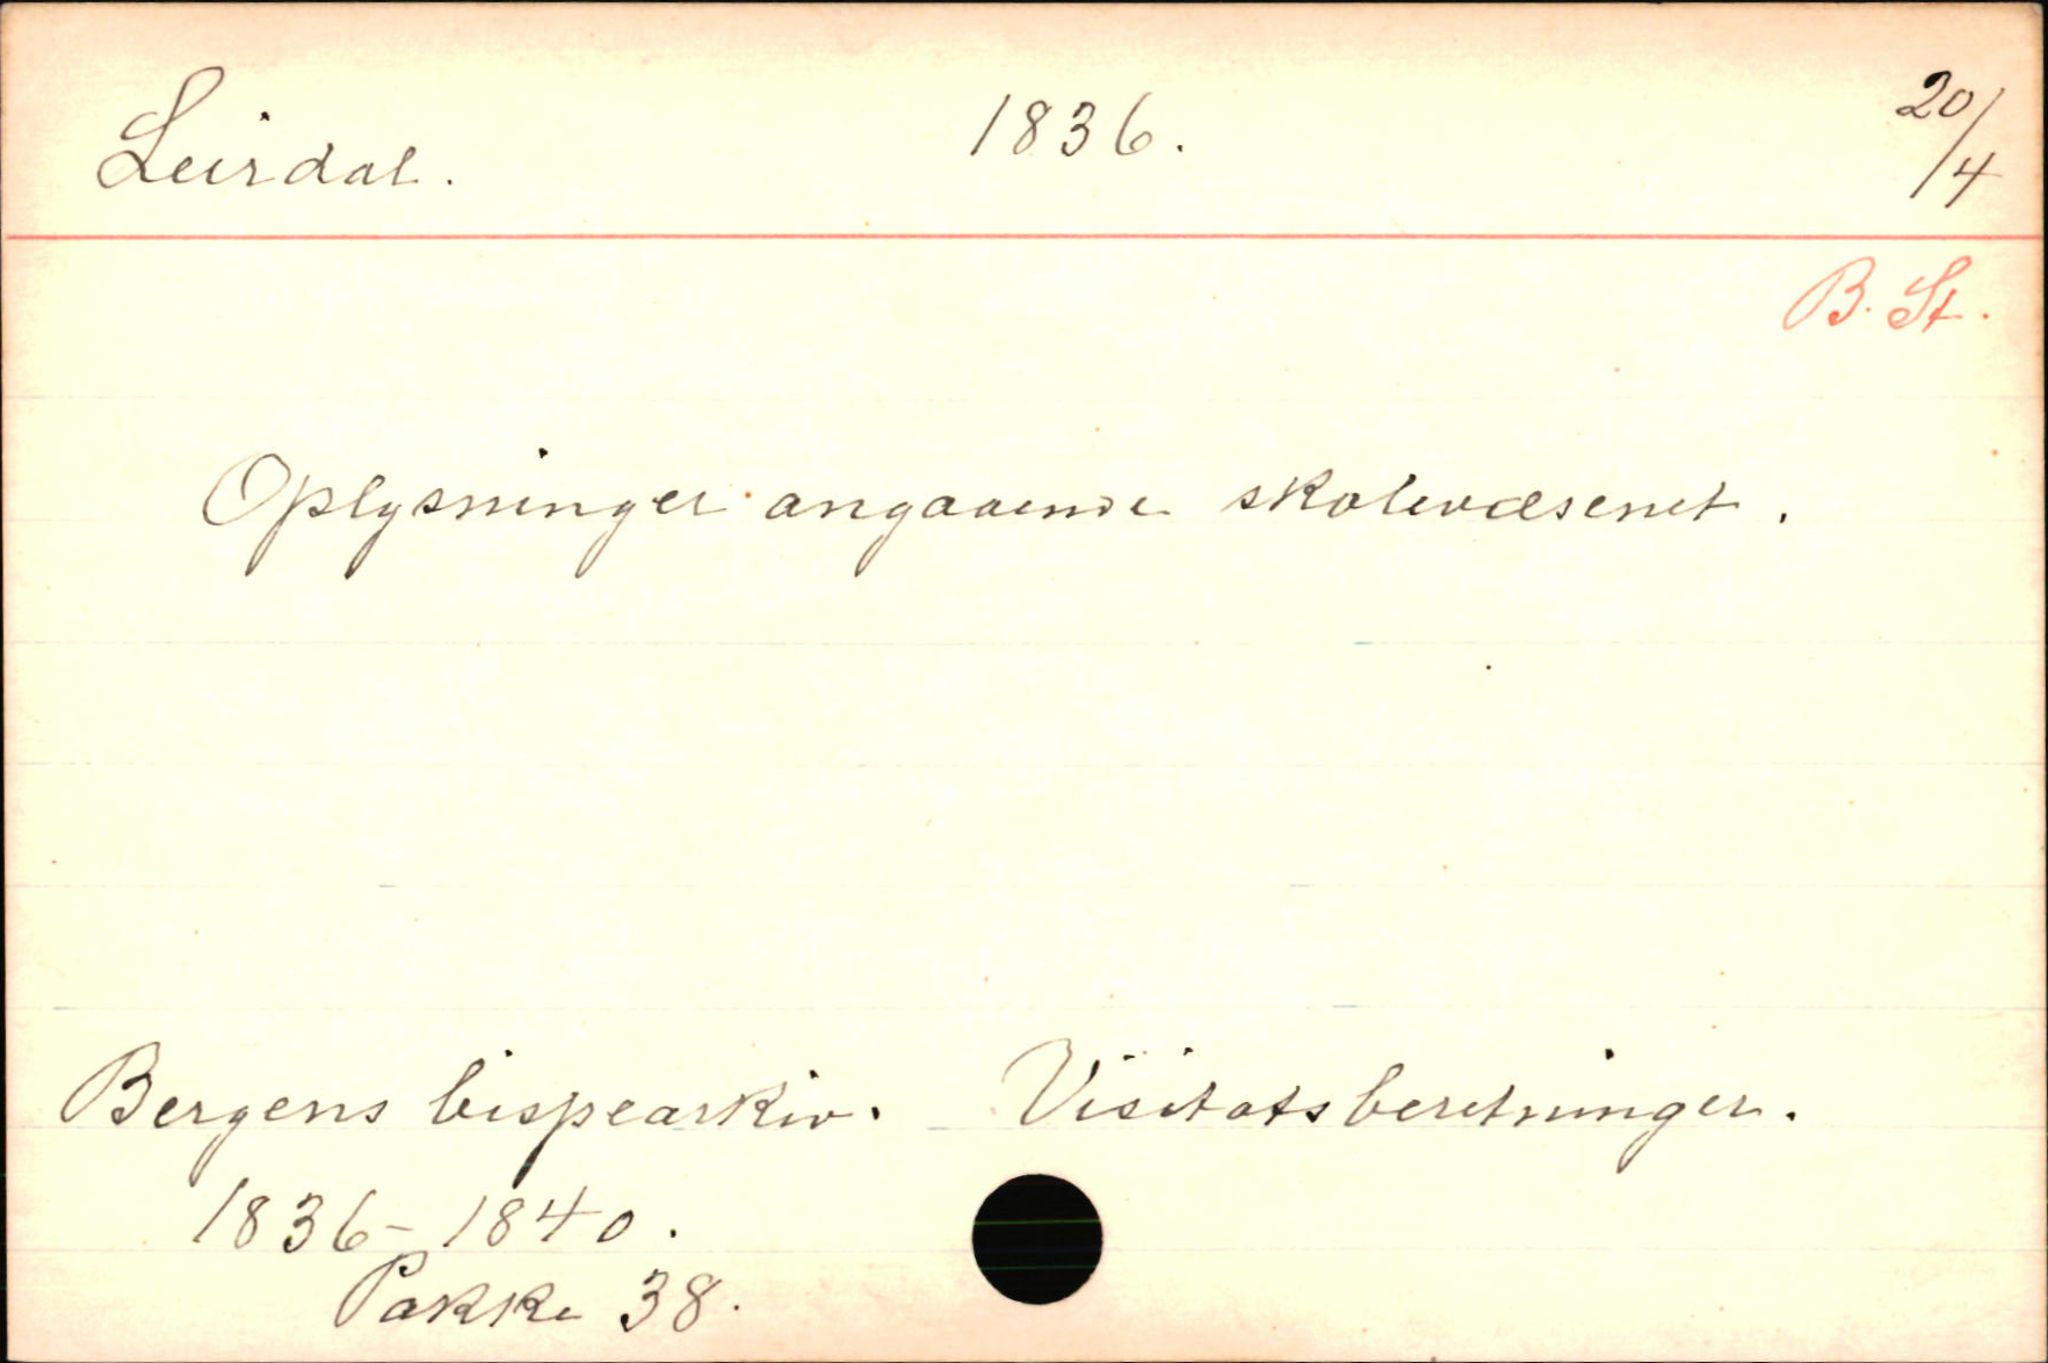 Leirdal. 1836. 20/4
B. St.
Oplysninger angaaende skolevæsenet.
Bergens bispearkiv. Visitatsberetninger.
1836-1840.
Pakke 38.